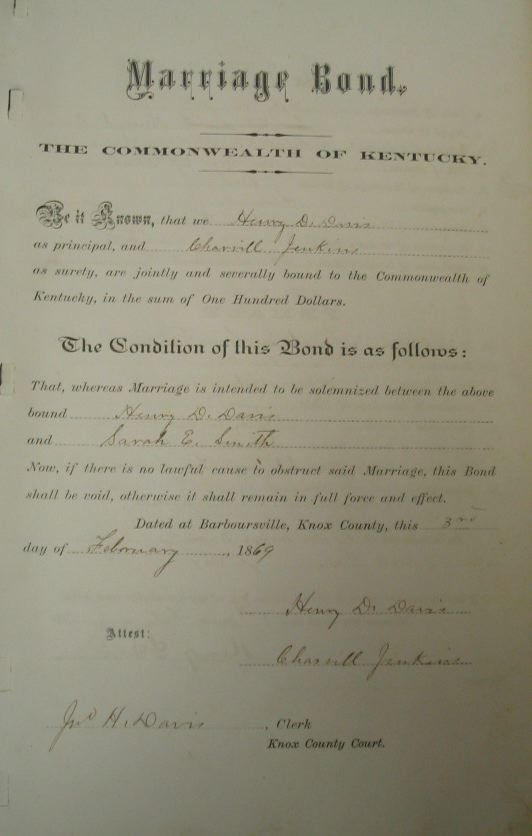 Marriage Bond.
THE COMMONWEALTH OF KENTUCKY.
Be it Known, that we Henry D. Davis
as principal, and Charvill Jenkins
as surety, are jointly and severally bound to the Commonwealth of
Kentucky, in the sum of One Hundred Dollars.
The Condition of this Bond is as follows:
That, whereas Marriage is intended to be solemnized between the above
bound Henry D. Davis
and Sarah E. Smith
Now, if there is no lawful cause to obstruct said Marriage, this Bond
shall be void, otherwise it shall remain in full force and effect.
Dated at Barboursville, Knox County, this 3rd
day of February, 1869
Henry D. Davis
Attest:
Charvill Jenkins
Jno H. Davis, Clerk
Knox County Court.